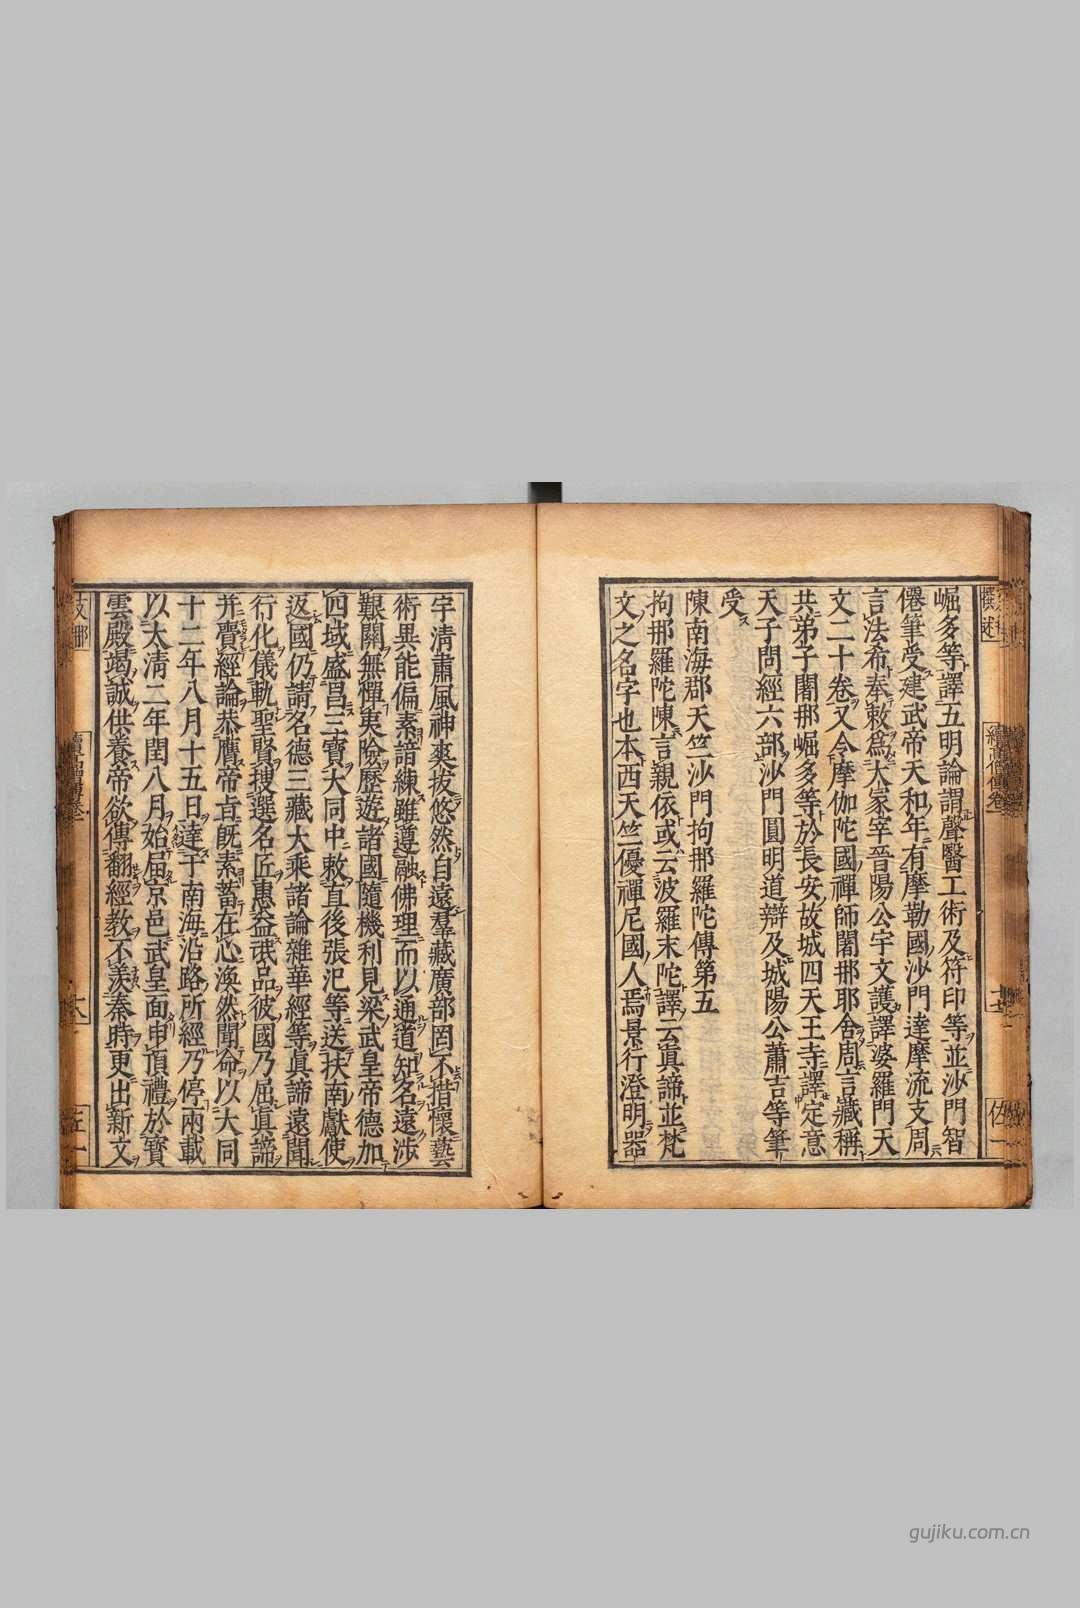 崛多等譯五明論謂聲醫工術及符印等並沙門智
僊筆受建武帝天和年有摩勒國沙門達摩流支周
言法希奉敕爲大冢宰晉陽公宇文護譯婆羅門天
文二十卷又令摩伽陀國禪師闍那耶舍周言藏稱
共弟子闍那崛多等於長安故城四天王寺譯定意
天子問經六部沙門圓明道辯及城陽公蕭吉等筆
受
陳南海郡天竺沙門拘那羅陀傳第五
拘那羅陀陳言親依或云波羅末陀譯云眞諦並梵
文之名字也本西天竺優禪尼國人焉景行澄明器
宇淸肅風神爽拔悠然自遠羣藏廣部罔不措懷藝
術異能偏素諳練雖遵融佛理而以通道知名遠涉
艱關無憚夷險歷遊諸國隨機利見梁武皇帝德加
四域盛昌三寶大同中敕直後張氾等送扶南獻使
返國仍請名德三藏大乘諸論雜華經等眞諦遠聞
行化儀軌聖賢搜選名匠惠益氓品彼國乃屈眞諦
并賫經論恭膺帝旨旣素蓄在心渙然聞命以大同
十二年八月十五日達于南海沿路所經乃停兩載
以太淸二年閏八月始届京邑武皇面申頂禮於寶
雲殿竭誠供養帝欲傳翻經教不羨秦時更出新文
續高僧傳卷一
gujiku.com.cn